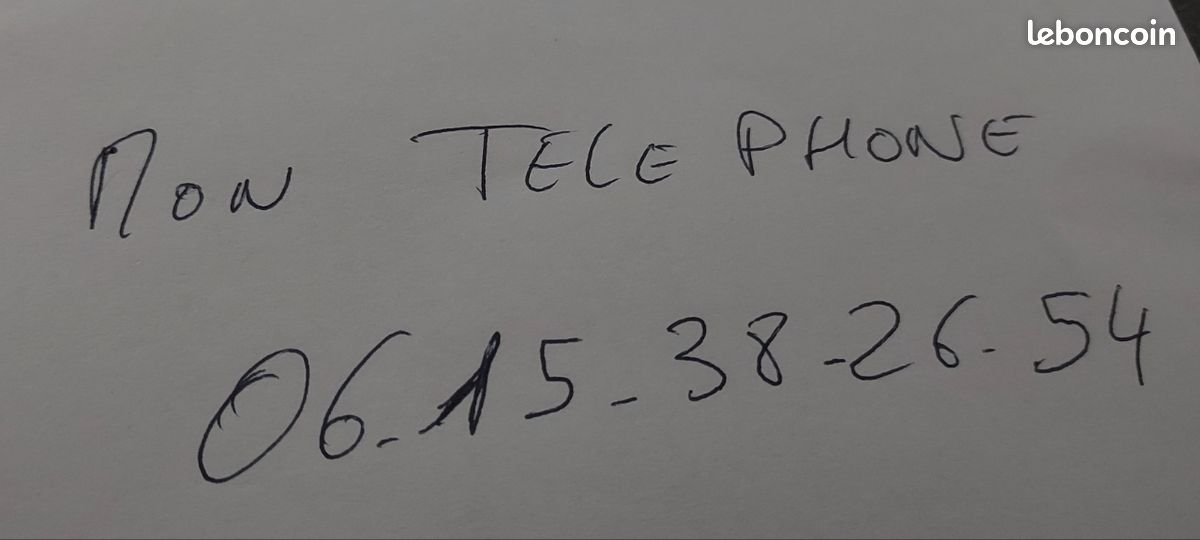 leboncoin
MON TELEPHONE
06-15-38-26-54